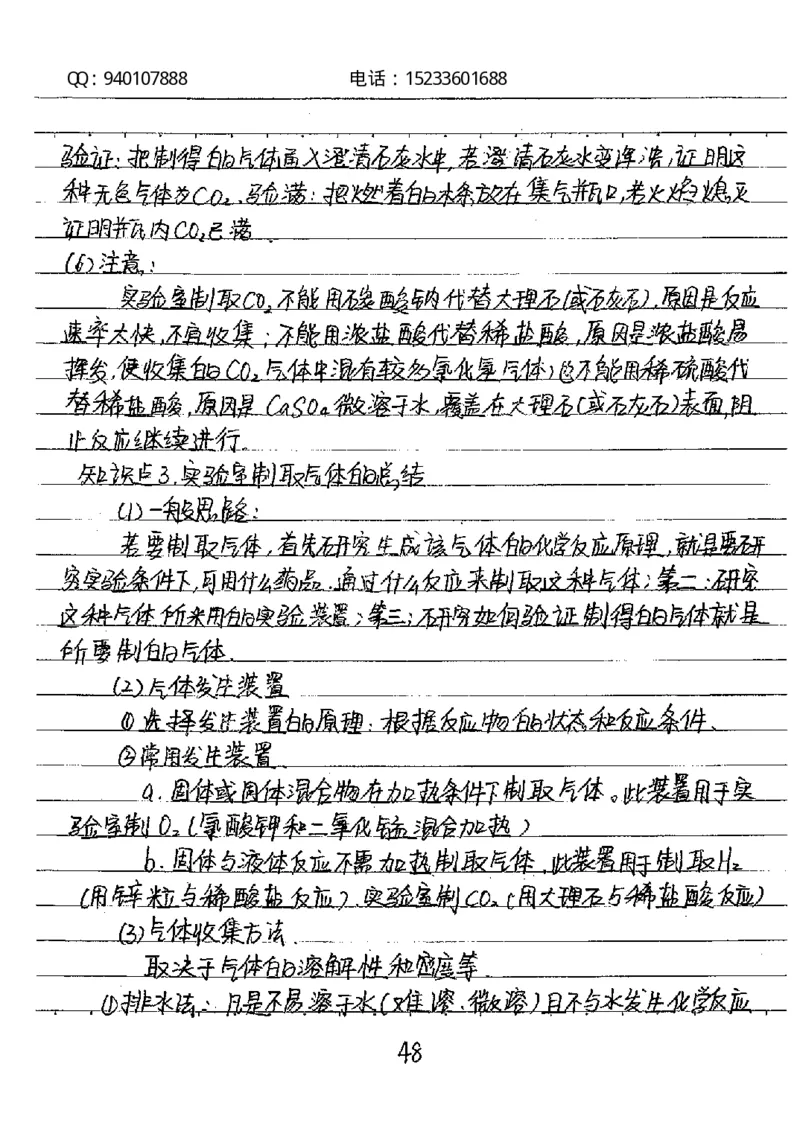 QQ：940107888 电话：15233601688
验证：把制得的气体通入澄清石灰水中，若澄清石灰水变浑浊，证明这
种无色气体为CO₂。验满：把燃着的木条放在集气瓶口，若火焰熄灭
证明瓶内CO₂已满
(6)注意：
实验室制取CO₂不能用碳酸钠代替大理石(或石灰石)，原因是反应
速率太快，不宜收集；不能用浓盐酸代替稀盐酸，原因是浓盐酸易
挥发，使收集的CO₂气体中混有较多氯化氢气体；也不能用稀硫酸代
替稀盐酸，原因是CaSO₄微溶于水，覆盖在大理石(或石灰石)表面，阻
止反应继续进行。
知识点3.实验室制取气体的总结
(1)一般思路：
若要制取气体，首先研究生成该气体的化学反应原理，就是要研
究实验条件下，可用什么药品、通过什么反应来制取这种气体；第二：研究
这种气体所采用的实验装置；第三：研究如何验证制得的气体就是
所要制的气体.
(2)气体发生装置
①选择发生装置的原理：根据反应物的状态和反应条件、
②常用发生装置
a.固体或固体混合物在加热条件下制取气体。此装置用于实
验室制O₂(氯酸钾和二氧化锰混合加热)
b.固体与液体反应不需加热制取气体.此装置用于制取H₂
(用锌粒与稀酸盐反应).实验室制CO₂(用大理石与稀盐酸反应)
(3)气体收集方法.
取决于气体的溶解性和密度等.
①排水法：凡是不易溶于水(难溶、微溶)且不与水发生化学反应
48